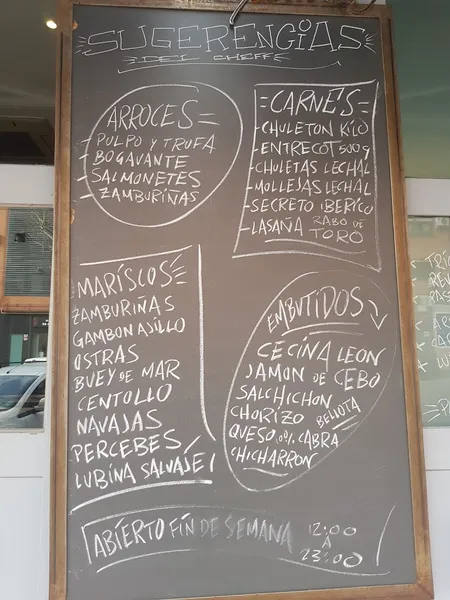 SUGERENCIAS
DEL CHEFF
ARROCES
PULPO Y TRUFA
- BOGAVANTE
- SALMONETES
- ZAMBURIÑAS
= CARNES =
- CHULETON KILO
- ENTRECOT 500g
- CHULETAS LECHAL
- MOLLEJAS LECHAL
- SECRETO IBERICO
- LASAÑA RABO DE
TORO
MARISCOS
ZAMBURIÑAS
GAMBON AJILLO
OSTRAS
BUEY DE MAR
CENTOLLO
NAVAJAS
PERCEBES
LUBINA SALVAJE
EMBUTIDOS
CECINA LEON
JAMON DE CEBO
SALCHICHON
CHORIZO BELLOTA
QUESO CABRA
CHICHARRON
ABIERTO FIN DE SEMANA
12:00
A
23:00